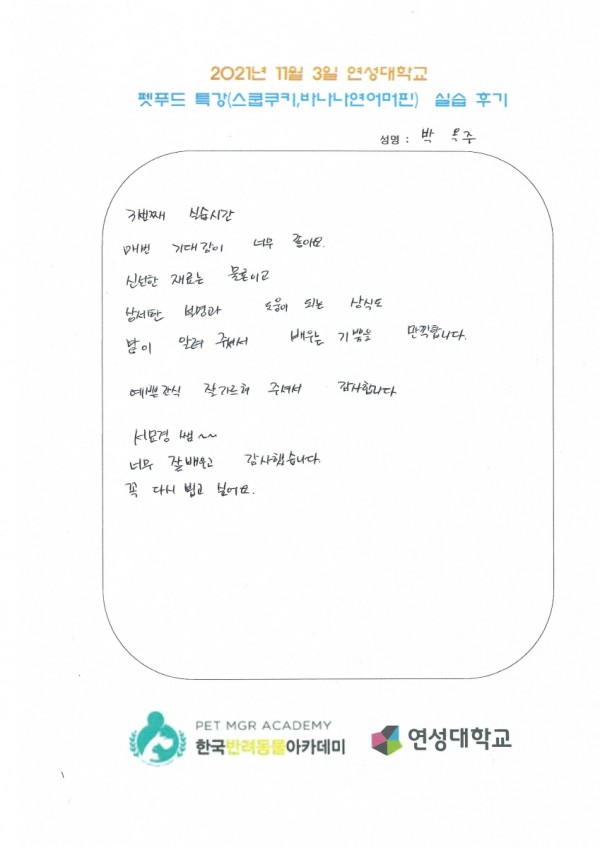 2021년 11월 3일 연성대학교
펫푸드 특강(스쿱쿠키,바나나연어머핀) 실습 후기
성명 : 박 옥주
3번째 실습시간
매번 기대감이 너무 좋아요.
신선한 재료는 물론이고
상세한 설명과 도움이 되는 상식도
많이 알려 주셔서 배우는 기쁨을 만끽합니다.
예쁜간식 잘가르쳐 주셔서 감사합니다
서묘경 쌤~~
너무 잘배우고 감사했습니다.
꼭 다시 뵙고 싶어요.
PET MGR ACADEMY
한국반려동물아카데미
연성대학교